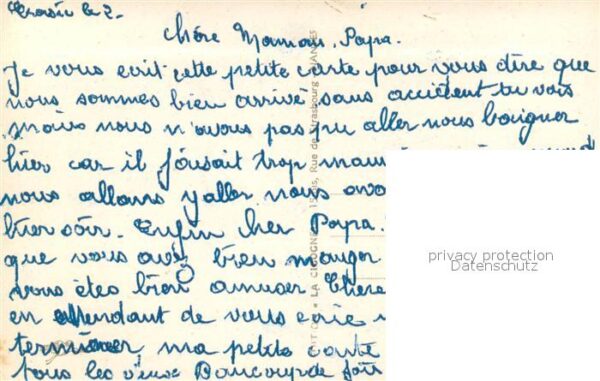 le 2.
Chère Maman, Papa.
Je vous ecrit cette petite carte pour vous dire que
nous sommes bien arrivé sans accident tu vois
mais nous n'avons pas pu aller nous baigner
hier car il faisait trop mauv
nous allons y aller nous avo
hier soir. Enfin cher Papa.
que vous avez bien manger
vous êtes bien amuser. Chere
en attendant de vous ecrie
terminer ma petite carte
tous les vieux Beaucoup de
LA CIGOGNE
Rue de Strasbourg
privacy protection
Datenschutz